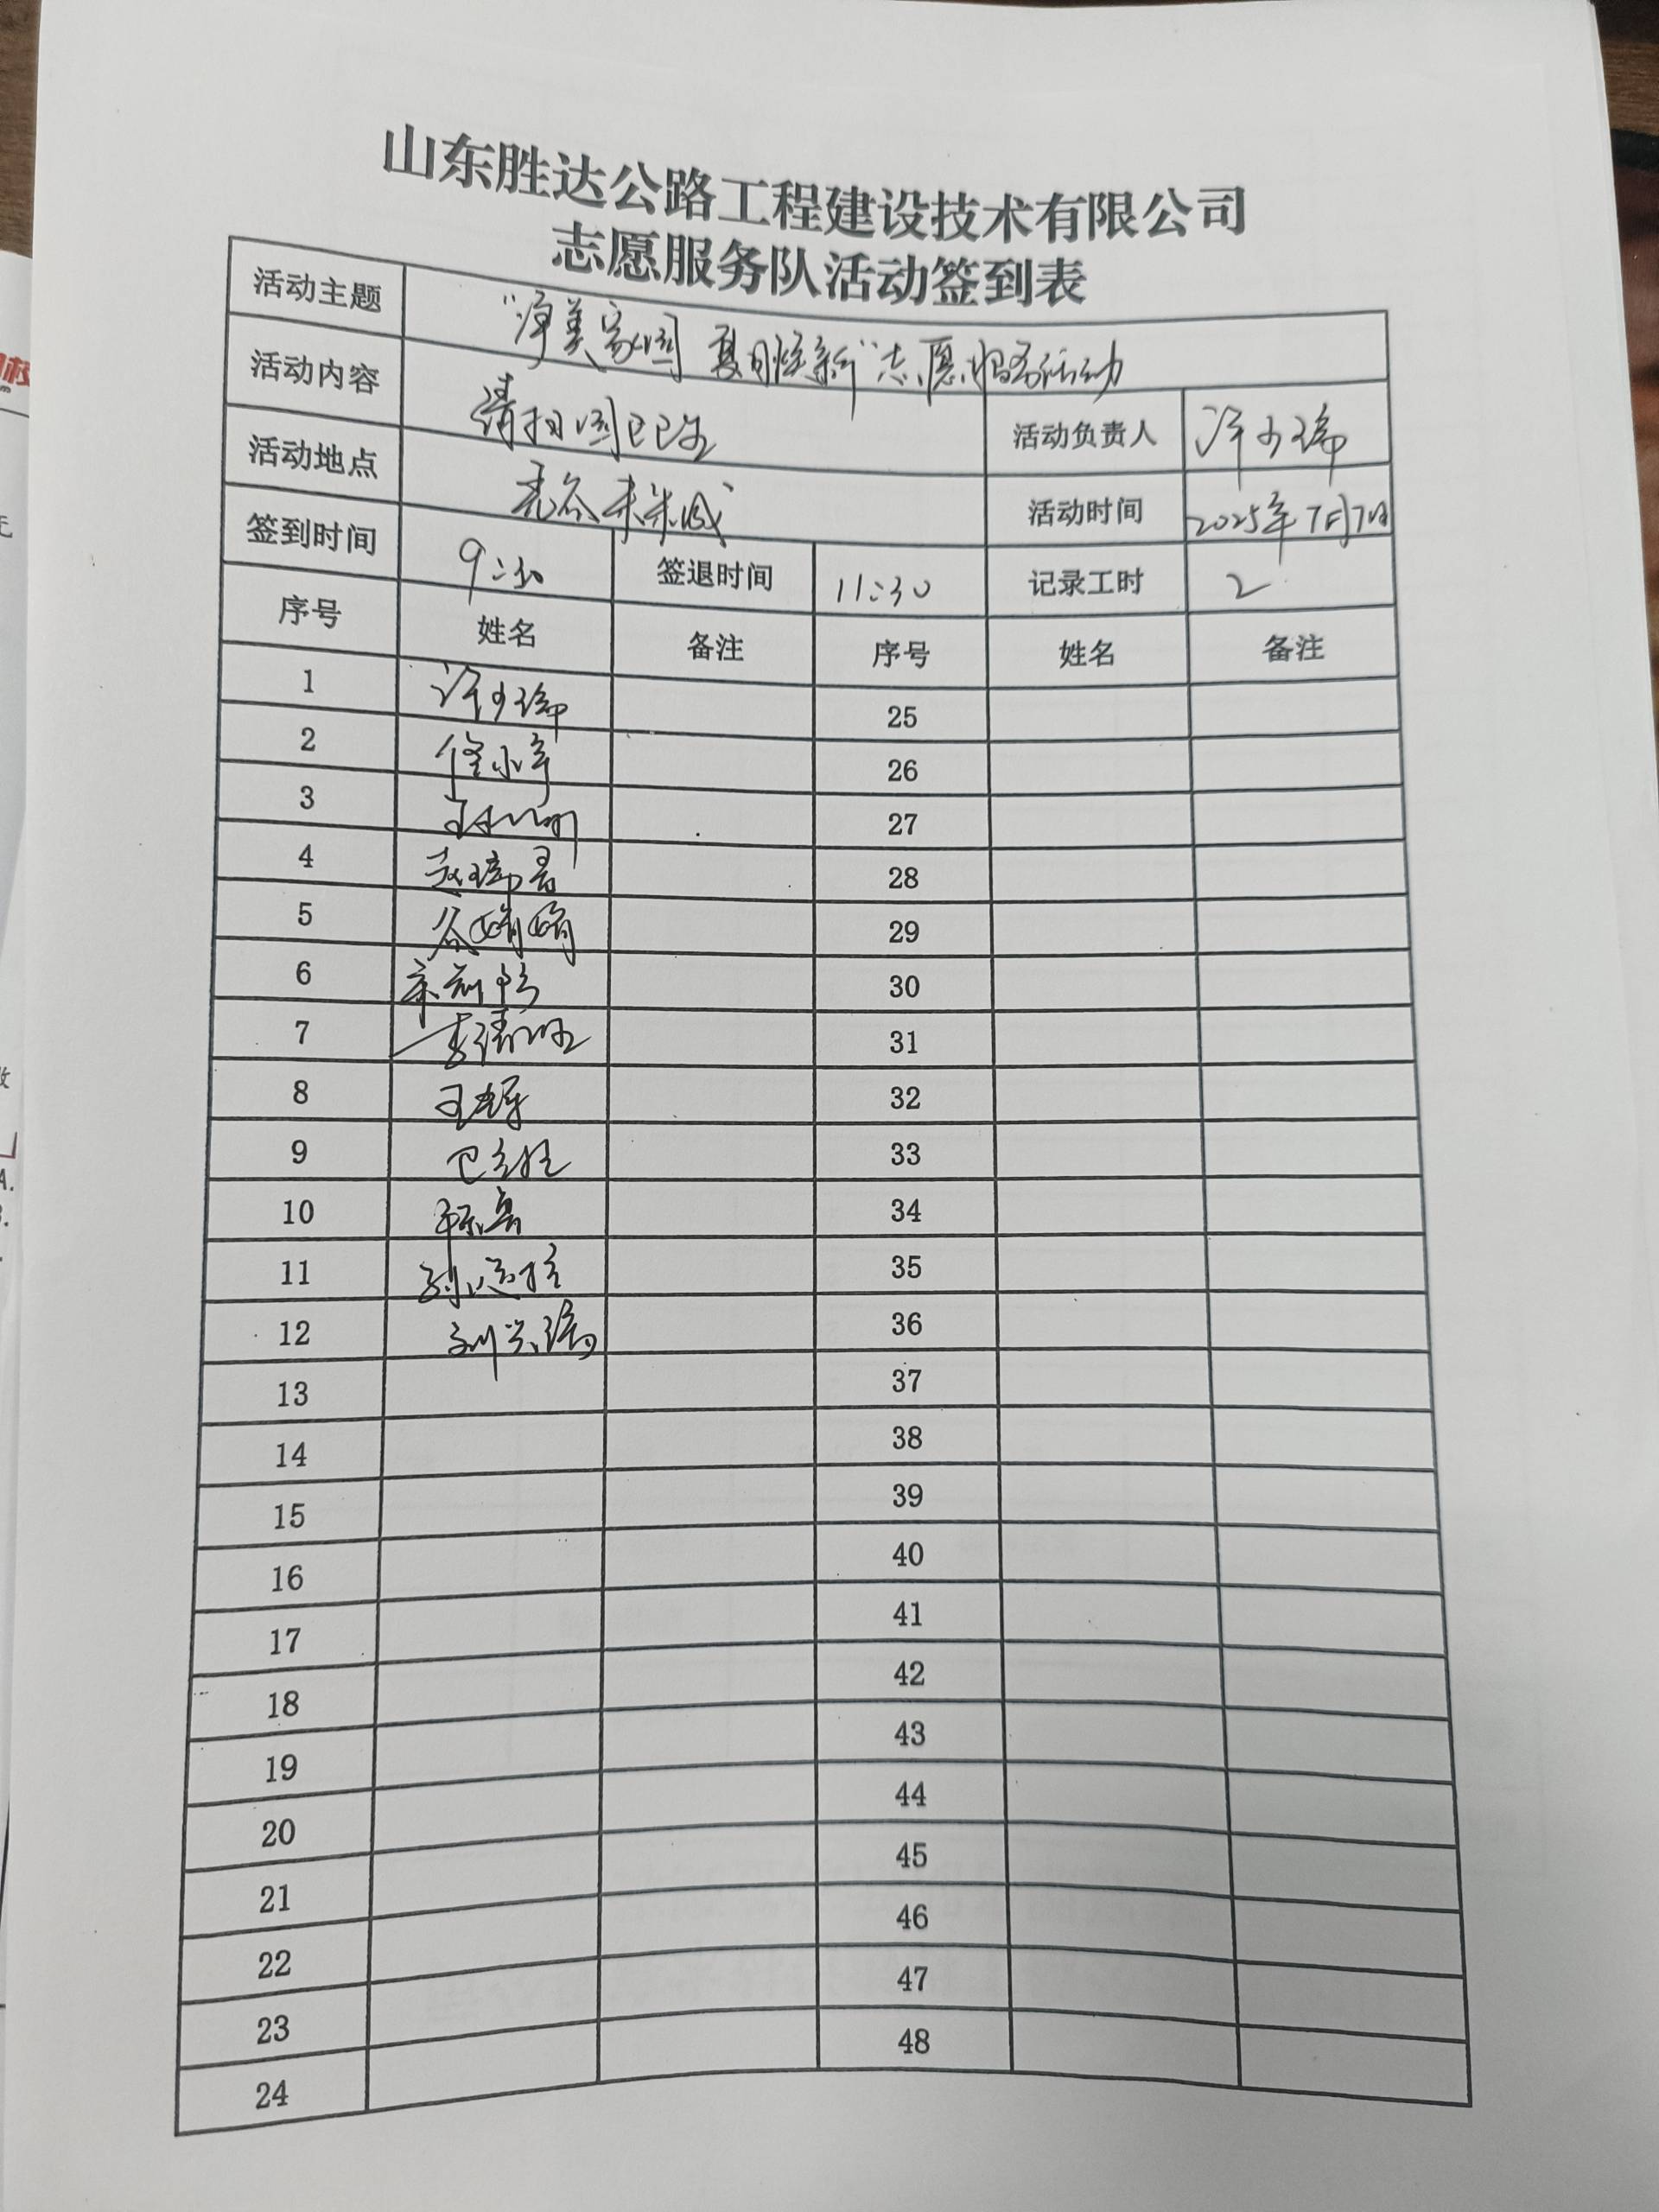 山东胜达公路工程建设技术有限公司
志愿服务队活动签到表
活动主题 "净美家园 夏日焕新"志愿服务活动
活动内容 清扫园区卫生 活动负责人 许少瑞
活动地点 未来城 活动时间 2025年7月7日
签到时间 9:30 签退时间 11:30 记录工时 2
序号 姓名 备注 序号 姓名 备注
1 许少瑞 25
2 佟小宁 26
3 27
4 赵瑞君 28
5 谷娟娟 29
6 30
7 31
8 32
9 33
10 34
11 35
12 36
13 37
14 38
15 39
16 40
17 41
18 42
19 43
20 44
21 45
22 46
23 47
24 48